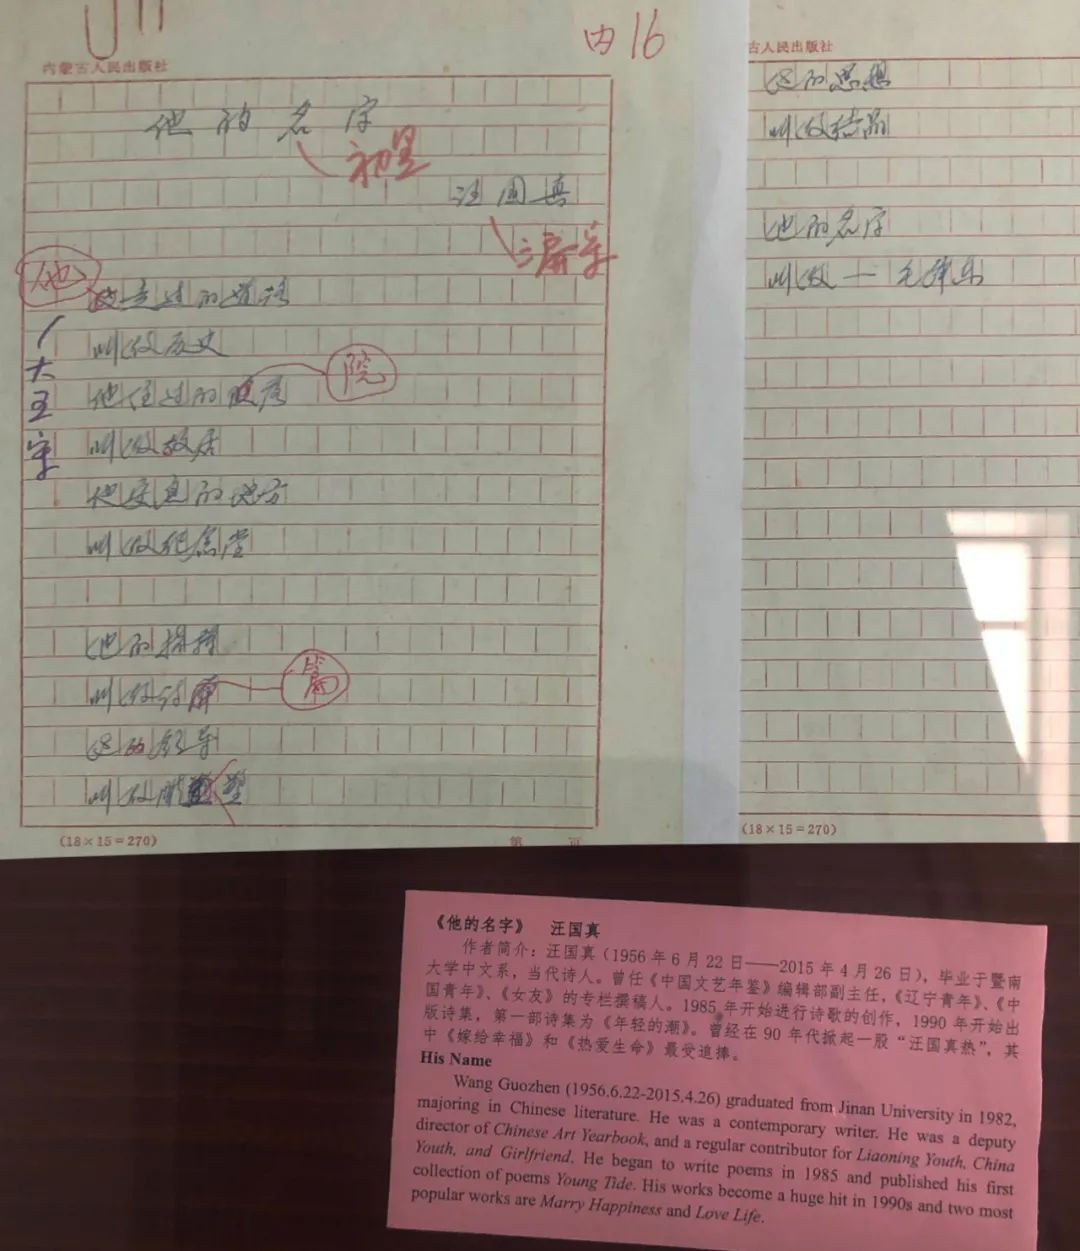 内16
内蒙古人民出版社
他的名字
初呈
汪国真
三扁宋
他
走过的道路
大王字
叫做历史
他住过的院落
院
叫做故居
他安息的地方
叫做纪念堂
他的
叫做诗篇
篇
他的
叫做雕塑
(18×15=270)
第 页
古人民出版社
他的思想
叫做结晶
他的名字
叫做一毛泽东
(18×15=270)
《他的名字》 汪国真
作者简介：汪国真（1956年6月22日——2015年4月26日），毕业于暨南
大学中文系，当代诗人。曾任《中国文艺年鉴》编辑部副主任，《辽宁青年》、《中
国青年》、《女友》的专栏撰稿人。1985年开始进行诗歌的创作，1990年开始出
版诗集，第一部诗集为《年轻的潮》。曾经在90年代掀起一股“汪国真热”，其
中《嫁给幸福》和《热爱生命》最受追捧。
His Name
Wang Guozhen (1956.6.22-2015.4.26) graduated from Jinan University in 1982,
majoring in Chinese literature. He was a contemporary writer. He was a deputy
director of Chinese Art Yearbook, and a regular contributor for Liaoning Youth, China
Youth, and Girlfriend. He began to write poems in 1985 and published his first
collection of poems Young Tide. His works become a huge hit in 1990s and two most
popular works are Marry Happiness and Love Life.